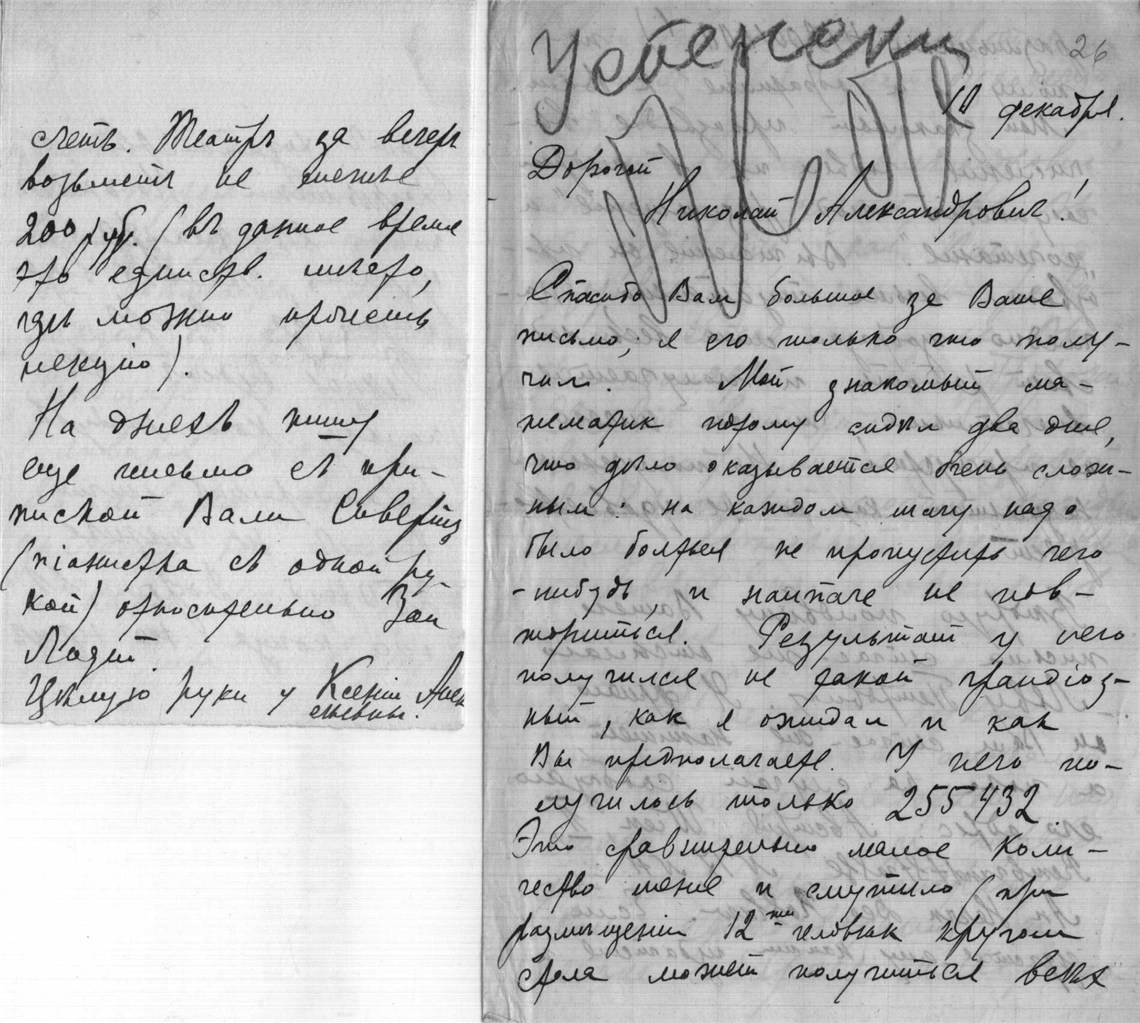 счетъ. Театръ за вечеръ
возьметъ не менѣе
200 руб. (въ данное время
это единств. мѣсто,
гдѣ можно прочесть
лекцію).
На дняхъ пишу
еще письмо съ при-
пиской Вали
(піанистка съ одной ру-
кой) относительно Зои
Лодій.
Цѣлую руки у Ксеніи Алек
сѣевны.
Успенски
26
10 декабря.
Дорогой
Николай Александровичъ!
Спасибо Вам большое за Ваше
письмо, я его только что полу-
чил. Мой знакомый ма-
тематик потому сидѣл два дня,
что дѣло оказывается очень слож-
ным: на каждом шагу надо
было бояться не пропустить чего
-нибудь, и наипаче не пов-
ториться. Результат у него
получился не такой грандіоз-
ный, как я ожидал и как
Вы предполагаете. У него по-
лучилось только 255432
Это сравнительно малое коли-
чество меня и смутило (при
размѣщеніи 12ти человѣк кругом
стола может получиться всѣх